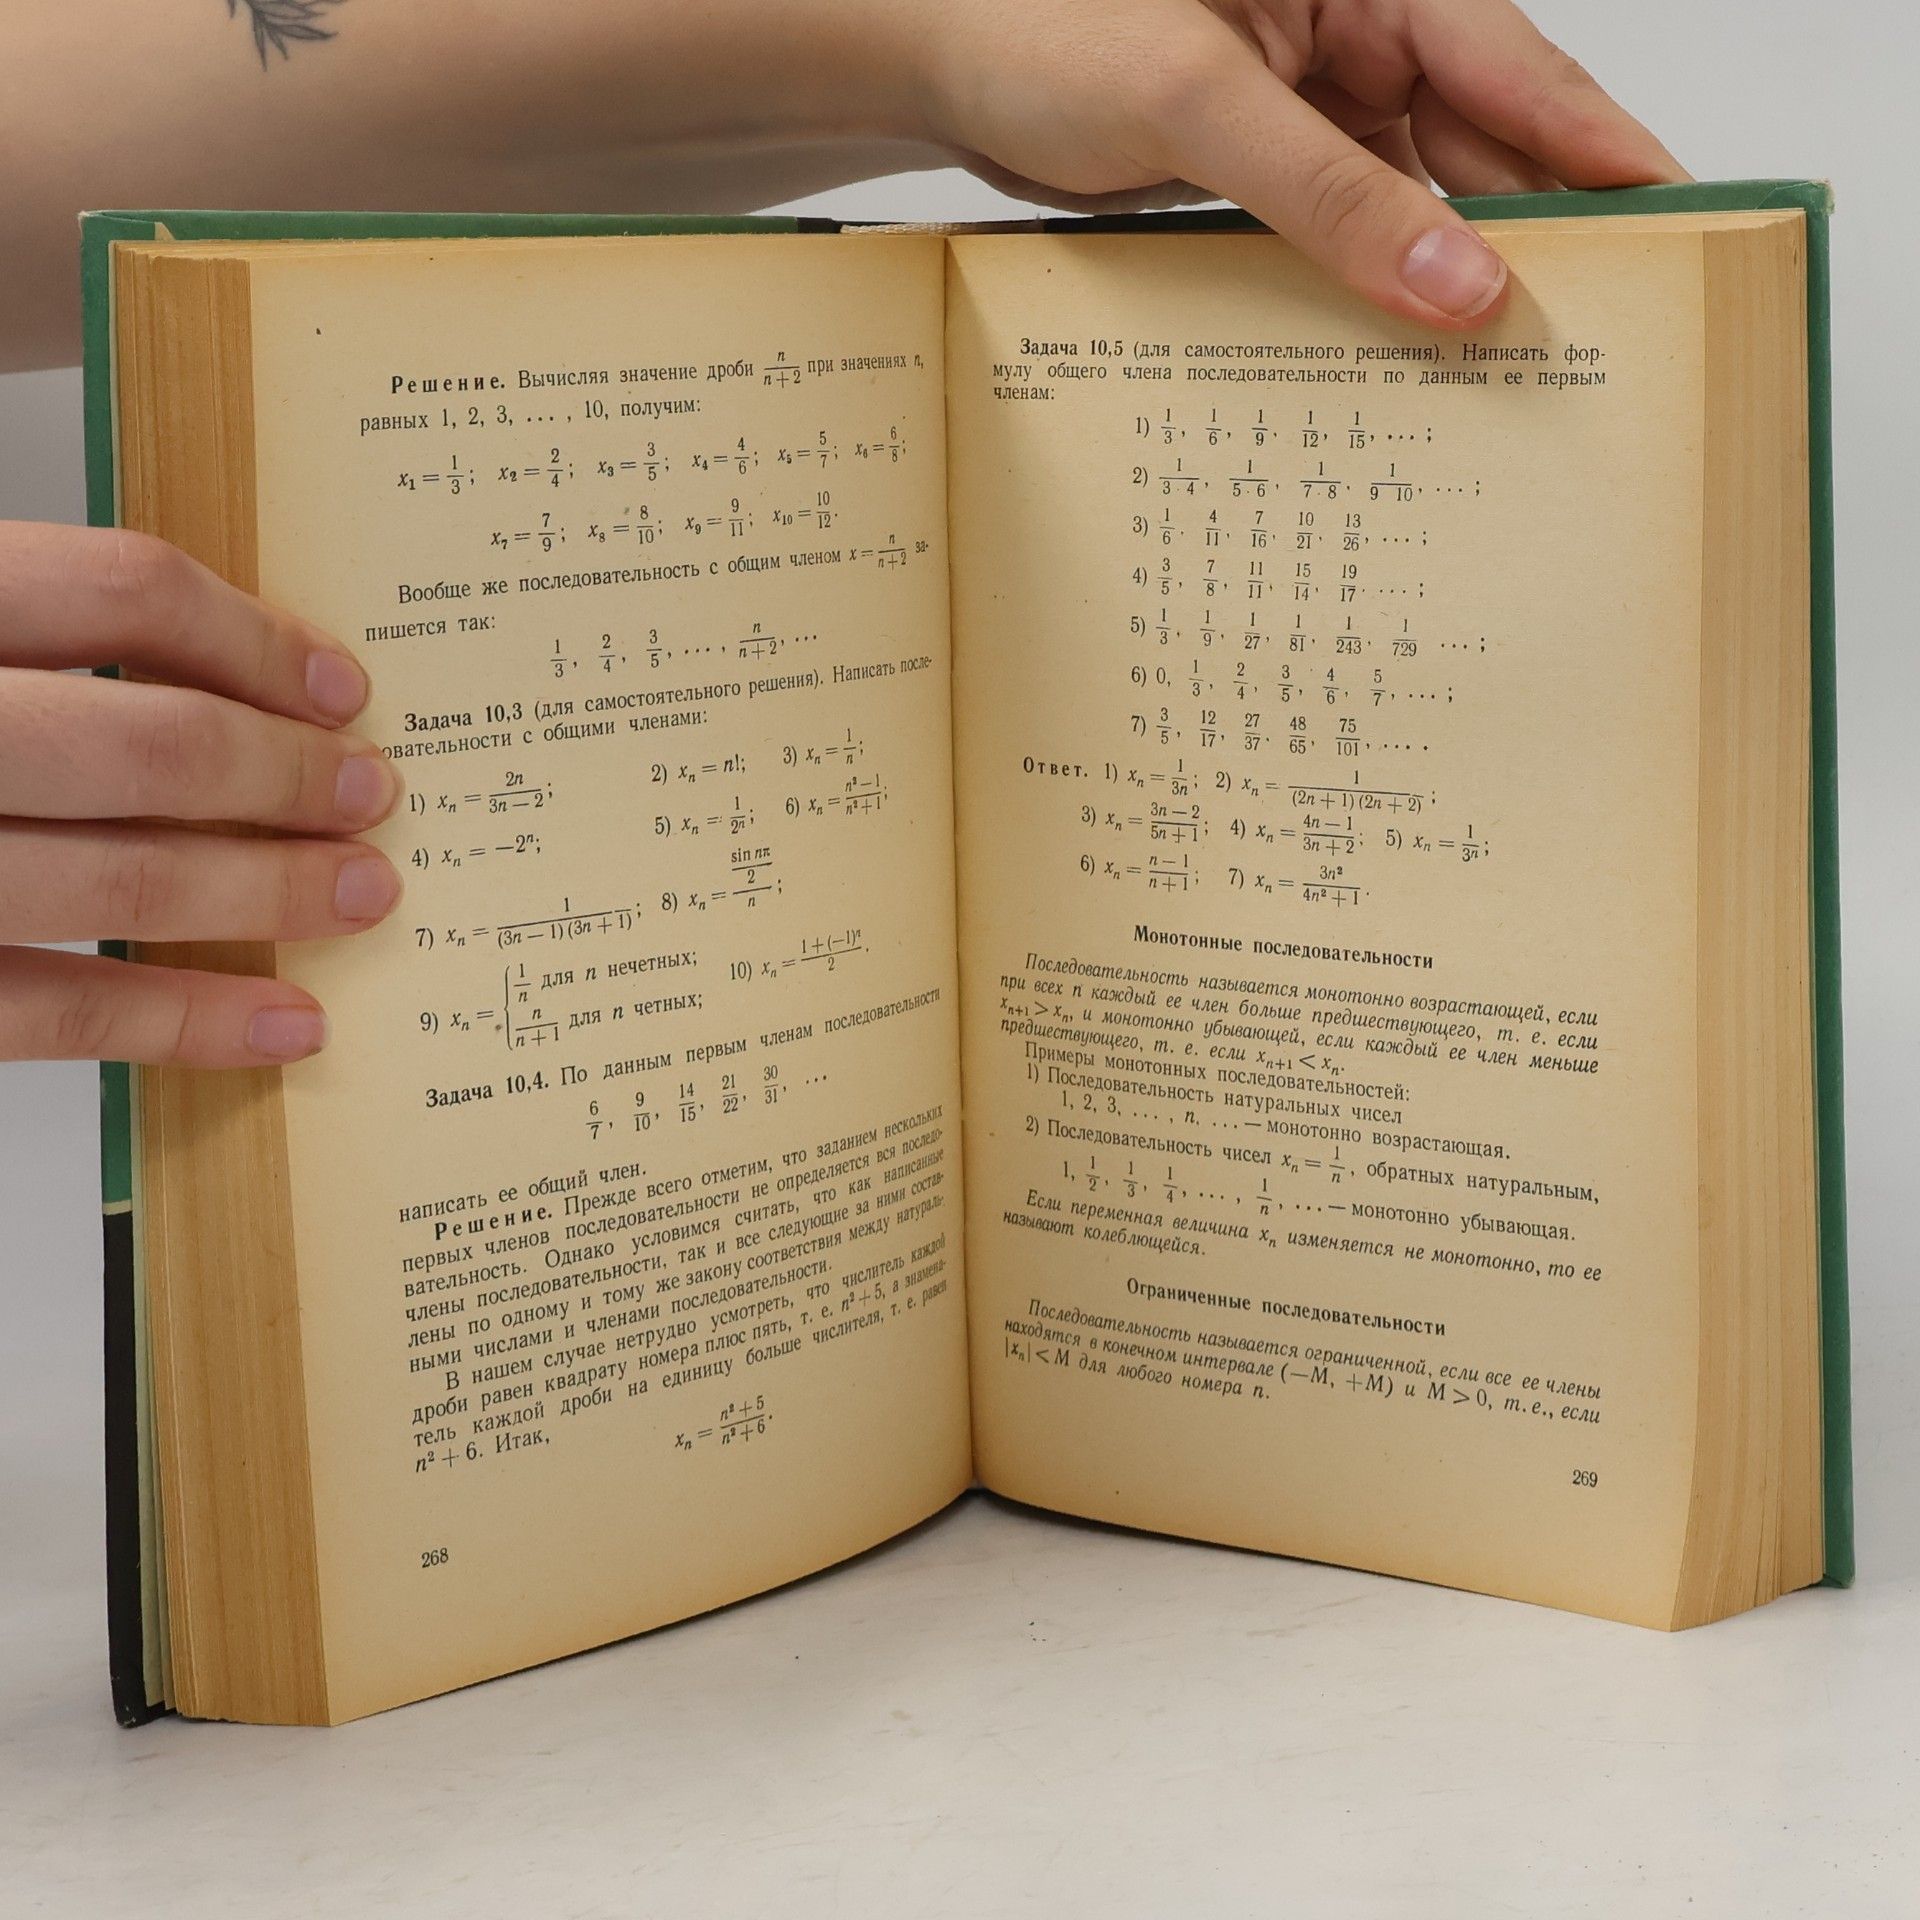 Решение. Вычисляя значение дроби n/(n+2) при значениях n,
равных 1, 2, 3, ..., 10, получим:
x₁ = 1/3; x₂ = 2/4; x₃ = 3/5; x₄ = 4/6; x₅ = 5/7; x₆ = 6/8;
x₇ = 7/9; x₈ = 8/10; x₉ = 9/11; x₁₀ = 10/12.
Вообще же последовательность с общим членом x = n/(n+2) за-
пишется так:
1/3, 2/4, 3/5, ..., n/(n+2), ...
Задача 10,3 (для самостоятельного решения). Написать после-
овательности с общими членами:
1) xₙ = 2n/(3n − 2); 2) xₙ = n!; 3) xₙ = 1/n;
4) xₙ = −2ⁿ; 5) xₙ = 1/2n; 6) xₙ = (n² − 1)/(n² + 1);
7) xₙ = 1/((3n − 1)(3n + 1)); 8) xₙ = (sin nπ/2)/n;
9) xₙ = { 1/n для n нечетных; n/(n+1) для n четных; 10) xₙ = (1 + (−1)ⁿ)/2.
Задача 10,4. По данным первым членам последовательности
6/7, 9/10, 14/15, 21/22, 30/31, ...
написать ее общий член.
Решение. Прежде всего отметим, что заданием нескольких
первых членов последовательности не определяется вся последо-
вательность. Однако условимся считать, что как написанные
члены последовательности, так и все следующие за ними состав-
лены по одному и тому же закону соответствия между натураль-
ными числами и членами последовательности.
В нашем случае нетрудно усмотреть, что числитель каждой
дроби равен квадрату номера плюс пять, т. е. n² + 5, а знамена-
тель каждой дроби на единицу больше числителя, т. е. равен
n² + 6. Итак,
xₙ = (n² + 5)/(n² + 6).
268
Задача 10,5 (для самостоятельного решения). Написать фор-
мулу общего члена последовательности по данным ее первым
членам:
1) 1/3, 1/6, 1/9, 1/12, 1/15, ... ;
2) 1/(3·4), 1/(5·6), 1/(7·8), 1/(9 10), ... ;
3) 1/6, 4/11, 7/16, 10/21, 13/26, ... ;
4) 3/5, 7/8, 11/11, 15/14, 19/17, ... ;
5) 1/3, 1/9, 1/27, 1/81, 1/243, 1/729 ... ;
6) 0, 1/3, 2/4, 3/5, 4/6, 5/7, ... ;
7) 3/5, 12/17, 27/37, 48/65, 75/101, ... .
Ответ. 1) xₙ = 1/3n; 2) xₙ = 1/((2n + 1)(2n + 2));
3) xₙ = (3n − 2)/(5n + 1); 4) xₙ = (4n − 1)/(3n + 2); 5) xₙ = 1/3ⁿ;
6) xₙ = (n − 1)/(n + 1); 7) xₙ = 3n²/(4n² + 1).
Монотонные последовательности
Последовательность называется монотонно возрастающей, если
при всех n каждый ее член больше предшествующего, т. е. если
xₙ₊₁ > xₙ, и монотонно убывающей, если каждый ее член меньше
предшествующего, т. е. если xₙ₊₁ < xₙ.
Примеры монотонных последовательностей:
1) Последовательность натуральных чисел
1, 2, 3, ..., n, ... — монотонно возрастающая.
2) Последовательность чисел xₙ = 1/n, обратных натуральным,
1, 1/2, 1/3, 1/4, ..., 1/n, ... — монотонно убывающая.
Если переменная величина xₙ изменяется не монотонно, то ее
называют колеблющейся.
Ограниченные последовательности
Последовательность называется ограниченной, если все ее члены
находятся в конечном интервале (−M, +M) и M > 0, т. е., если
|xₙ| < M для любого номера n.
269